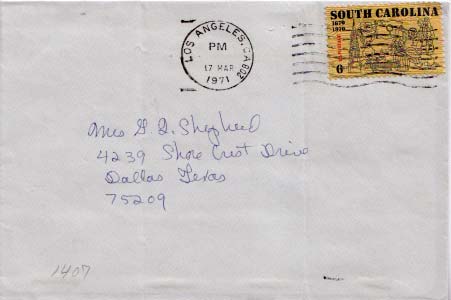 SOUTH CAROLINA
1670
1970
6
LOS ANGELES, CA 902
PM
17 MAR
1971
Mrs G. D. Shepherd
4239 Shore Crest Drive
Dallas Texas
75209
1407